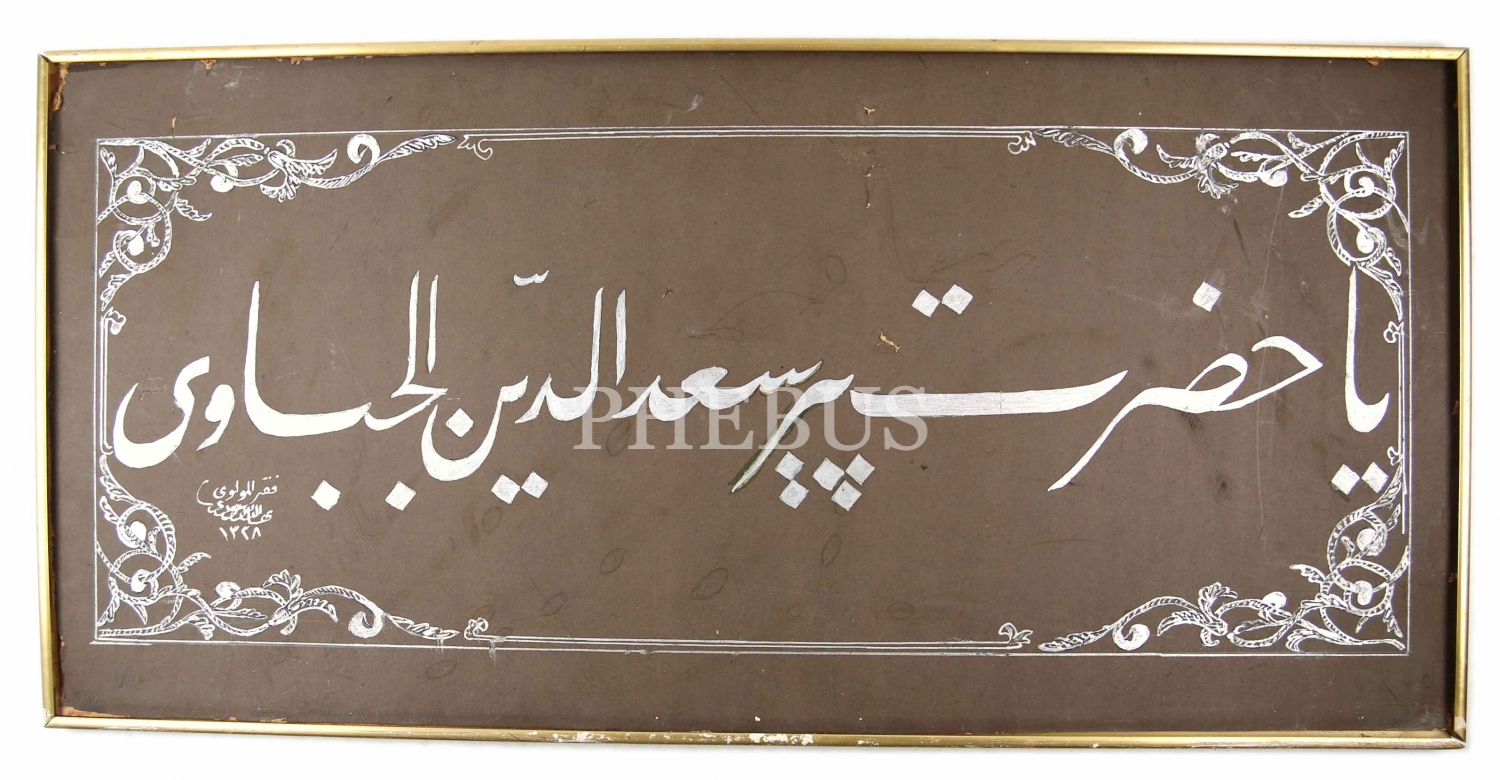 يا حضرت پير سعد الدّين الجباوى
فقر المولوى
١٣٢٨
PHEBUS